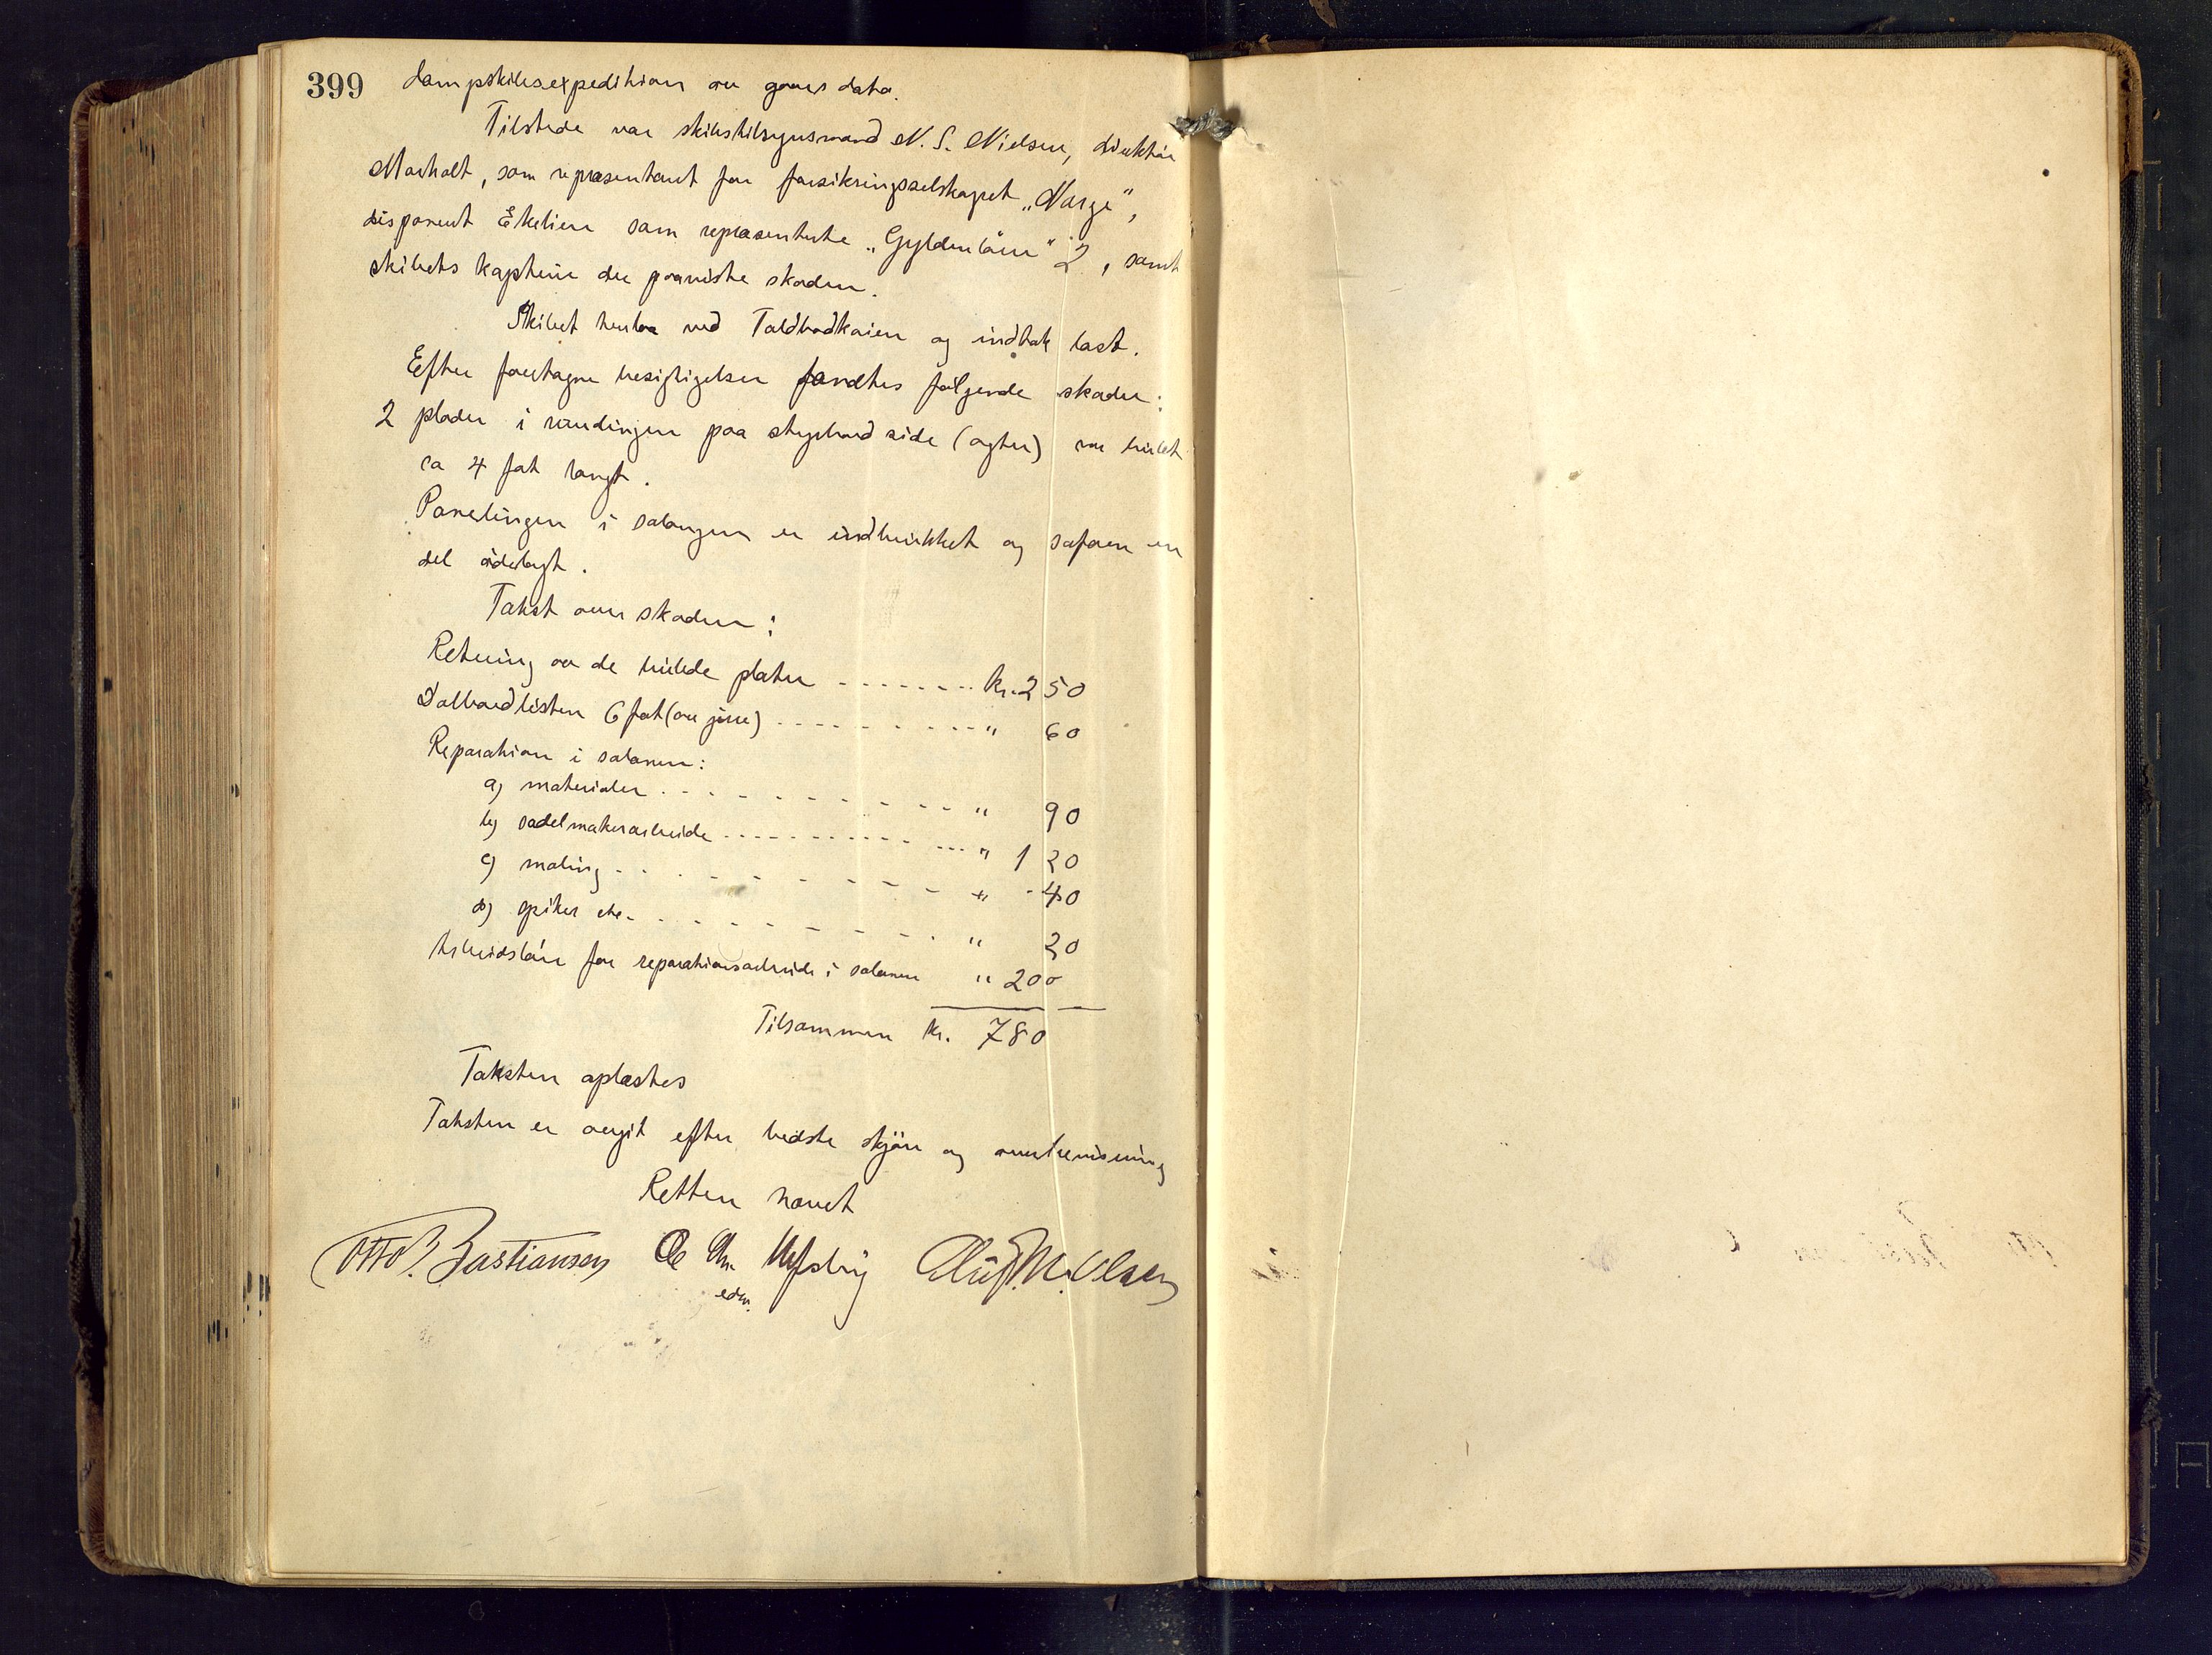 399 dampskibsexpedition av gaars dato.
Tilstede var skibstilsynsmand N. S. Nielsen, direktør
Morholt, som repræsentant for forsikringsselskapet „Norge",
disponent Ekelien som repræsenterte „Gyldenløve" 2, samt
skibets kaptein der paaviste skaden.
Skibet henlaa ved Toldbodkaien og indtok last.
Efter foretagne besigtigelser fandtes følgende skader:
2 plader i rundingen paa styrbord side (agter) var bulet
ca 4 fot langt.
Panelingen i salongen er indtrukket og sofaen en
del ødelagt.
Takst over skaden:
Retning av de bulede plater kr. 250
Dolbordlisten 6 fot (av jern) " 60
Reparation i salonen:
a) materialer " 90
b) sadelmakerarbeide " 120
c) maling " 40
d) spiker etc. " 20
Arbeidsløn for reparationsarbeide i salonen " 200
Tilsammen kr. 780
Taksten oplæstes
Taksten er avgit efter bedste skjøn og overbevisning
Retten hævet
Otto B. Bastiansen Ole Chr. Oluf M. Olsen
edsv.